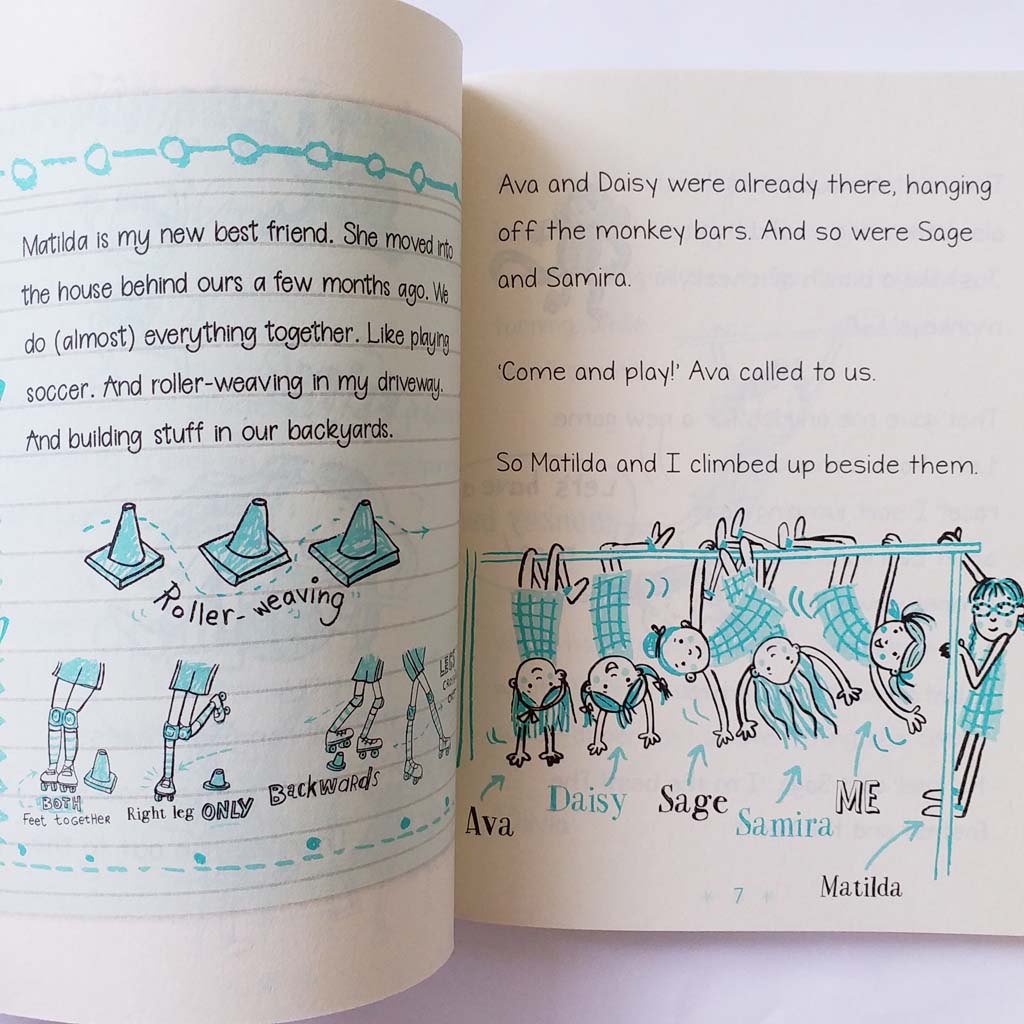 Matilda is my new best friend. She moved into
the house behind ours a few months ago. We
do (almost) everything together. Like playing
soccer. And roller-weaving in my driveway.
And building stuff in our backyards.
Roller-weaving
BOTH
Feet together
Right leg ONLY
Backwards
Ava and Daisy were already there, hanging
off the monkey bars. And so were Sage
and Samira.
‘Come and play!’ Ava called to us.
So Matilda and I climbed up beside them.
Ava
Daisy
Sage
Samira
ME
Matilda
7